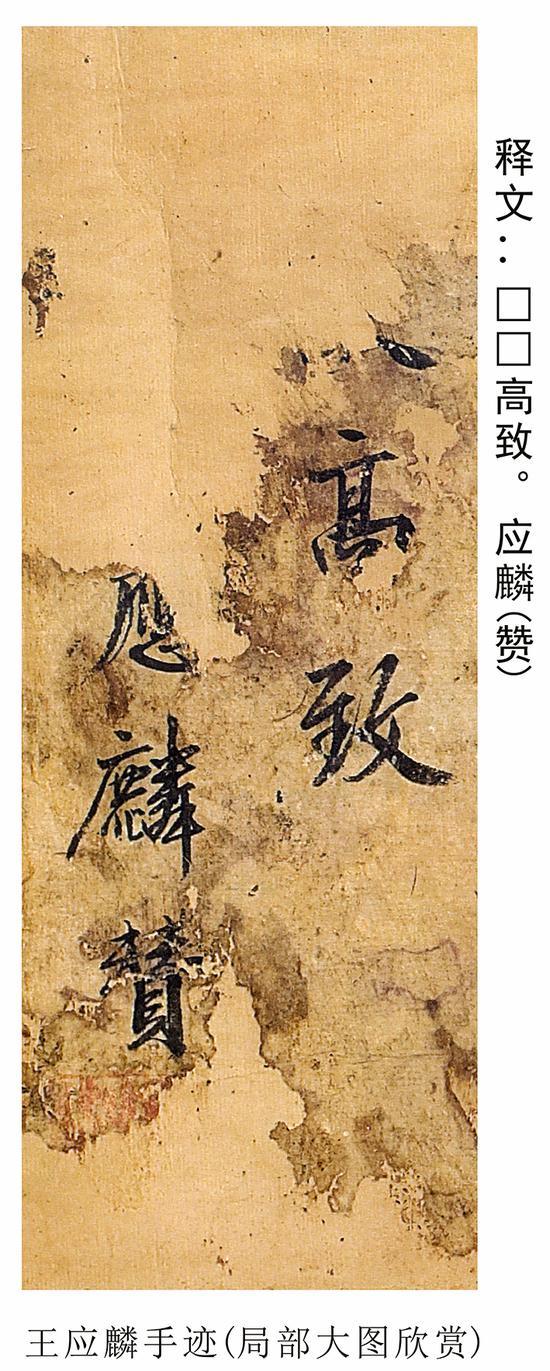 释文：□□高致。应麟（赞）
高致
應麟贊
王应麟手迹(局部大图欣赏)